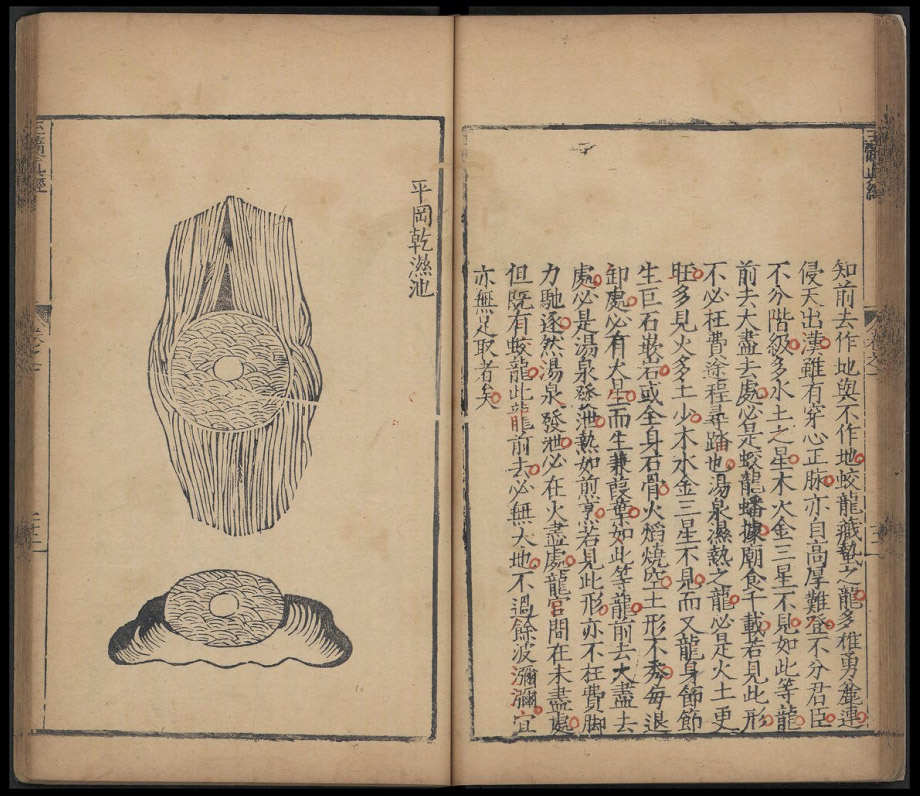 知前去作地與不作地蛟龍藏蟄之龍多雄勇麄連
侵天出漢雖有穿心正脉亦自高厚難登不分君臣
不分階級多水土之星木火金三星不見如此等龍
前去大盡去處必是蛟龍蟠據廟食千載若見此形
不必枉費途程尋踏也湯泉濕熱之龍必是火土更
旺多見火多土少木水金三星不見而又龍身節節
生巨石嵌岩或全身石骨火熖燒空土形不秀每退
卸處必有大星而生兼葭葉如此等龍前去大盡去
處必是湯泉發泄熱如前烹若見此形亦不枉費脚
力馳逐然湯泉發泄必在火盡處龍官間在未盡處
但既有蛟龍此龍前去必無大地不過餘波瀰瀰宜
亦無足取者矣
平岡乾濕池